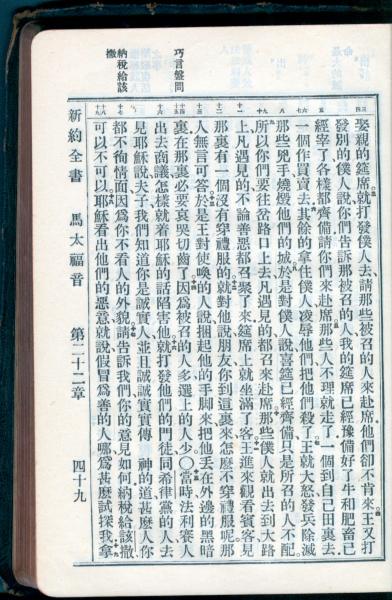 娶親的筵席就打發僕人去請那些被召的人來赴席他們卻不肯來王又打
發別的僕人說你們告訴那被召的人我的筵席已經豫備好了牛和肥畜已
經宰了各樣都齊備請你們來赴席那些人不理就走了一個到自己田裏去
一個作買賣去其餘的拿住僕人凌辱他們把他們殺了王就大怒發兵除滅
那些兇手燒燬他們的城於是對僕人說喜筵已經齊備只是所召的人不配
所以你們要往岔路口上去凡遇見的都召來赴席那些僕人就出去到大路
上凡遇見的不論善惡都召聚了來筵席上就坐滿了客王進來觀看賓客見
那裏有一個沒有穿禮服的就對他說朋友你到這裏來怎麼不穿禮服呢那
人無言可答於是王對使喚的人說捆起他的手脚來把他丟在外邊的黑暗
巧言盤問
裏在那裏必要哀哭切齒了因爲被召的人多選上的人少○當時法利賽人
出去商議怎樣就着耶穌的話陷害他就打發他們的門徒同希律黨的人去
見耶穌說夫子我們知道你是誠實人並且誠誠實實傳 神的道甚麼人你
納稅給該
撒
都不徇情面因爲你不看人的外貌請告訴我們你的意見如何納稅給該撒
可以不可以耶穌看出他們的惡意就說假冒爲善的人哪爲甚麼試探我拿
新約全書 馬太福音 第二十二章 四十九